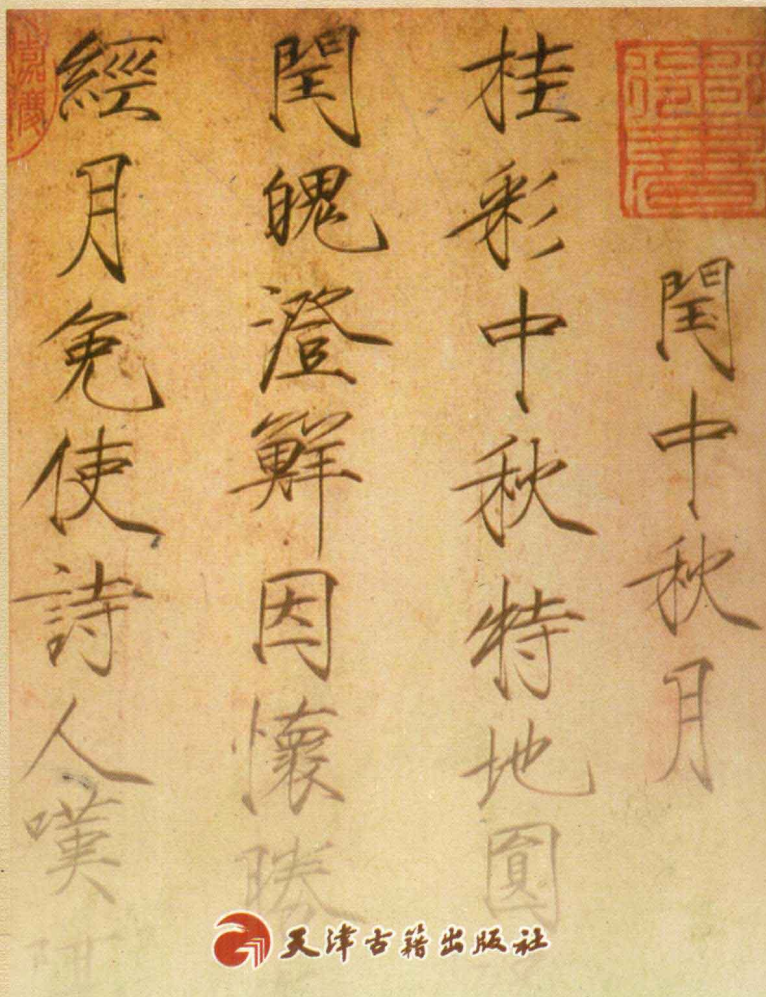 閏中秋月
桂彩中秋特地圓
閏魄澄鮮因懷勝
經月免使詩人嘆隔
嘉慶
天津古籍出版社